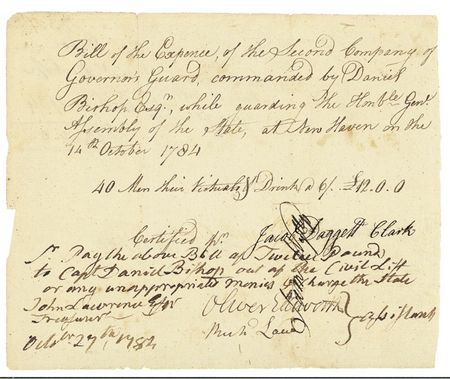 Bill of the Expence, of the Second Company of
Governor's Guard, commanded by Daniel
Bishop Esqr, while guarding the Honble Genl
Assembly of the State, at New Haven on the
14th October 1784
40 Men their Victuals & Drink a 6/. £12.0.0
Certified pr Jacob Daggett Clark
Sr Pay the above Bill of Twelve Pound
to Capt Daniel Bishop out of the Civil List
or any unappropriated monies & Charge the State
John Lawrence Esqr
Treasurer
Oliver Ellsworth
Richd Law
Assistants
Octobr 27th, 1784